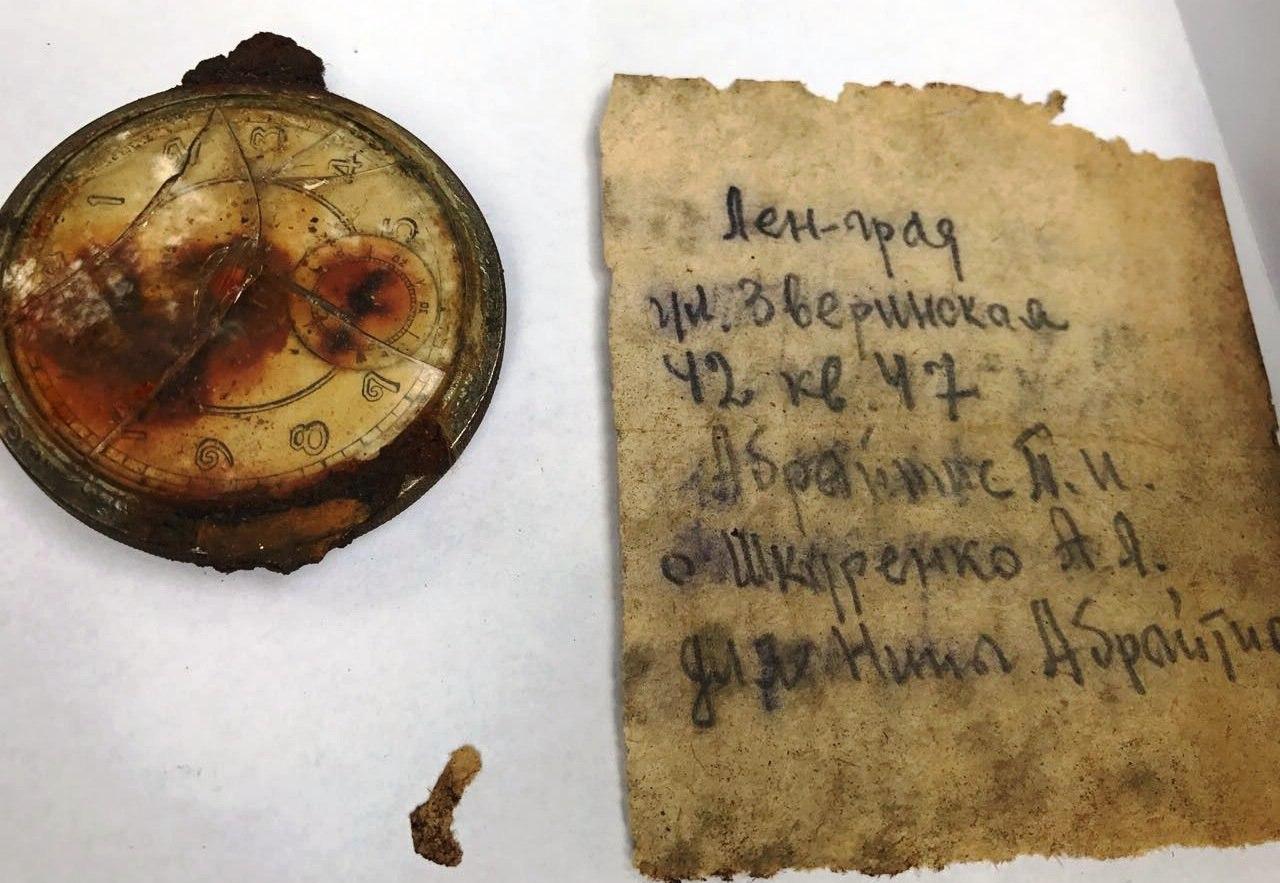 1
2
3
4
5
7
8
9
Лен-град
ул. Зверинская
42 кв. 47
Абрайтис П. И.
о Шкуренко А. А.
для Нины Абрайтис